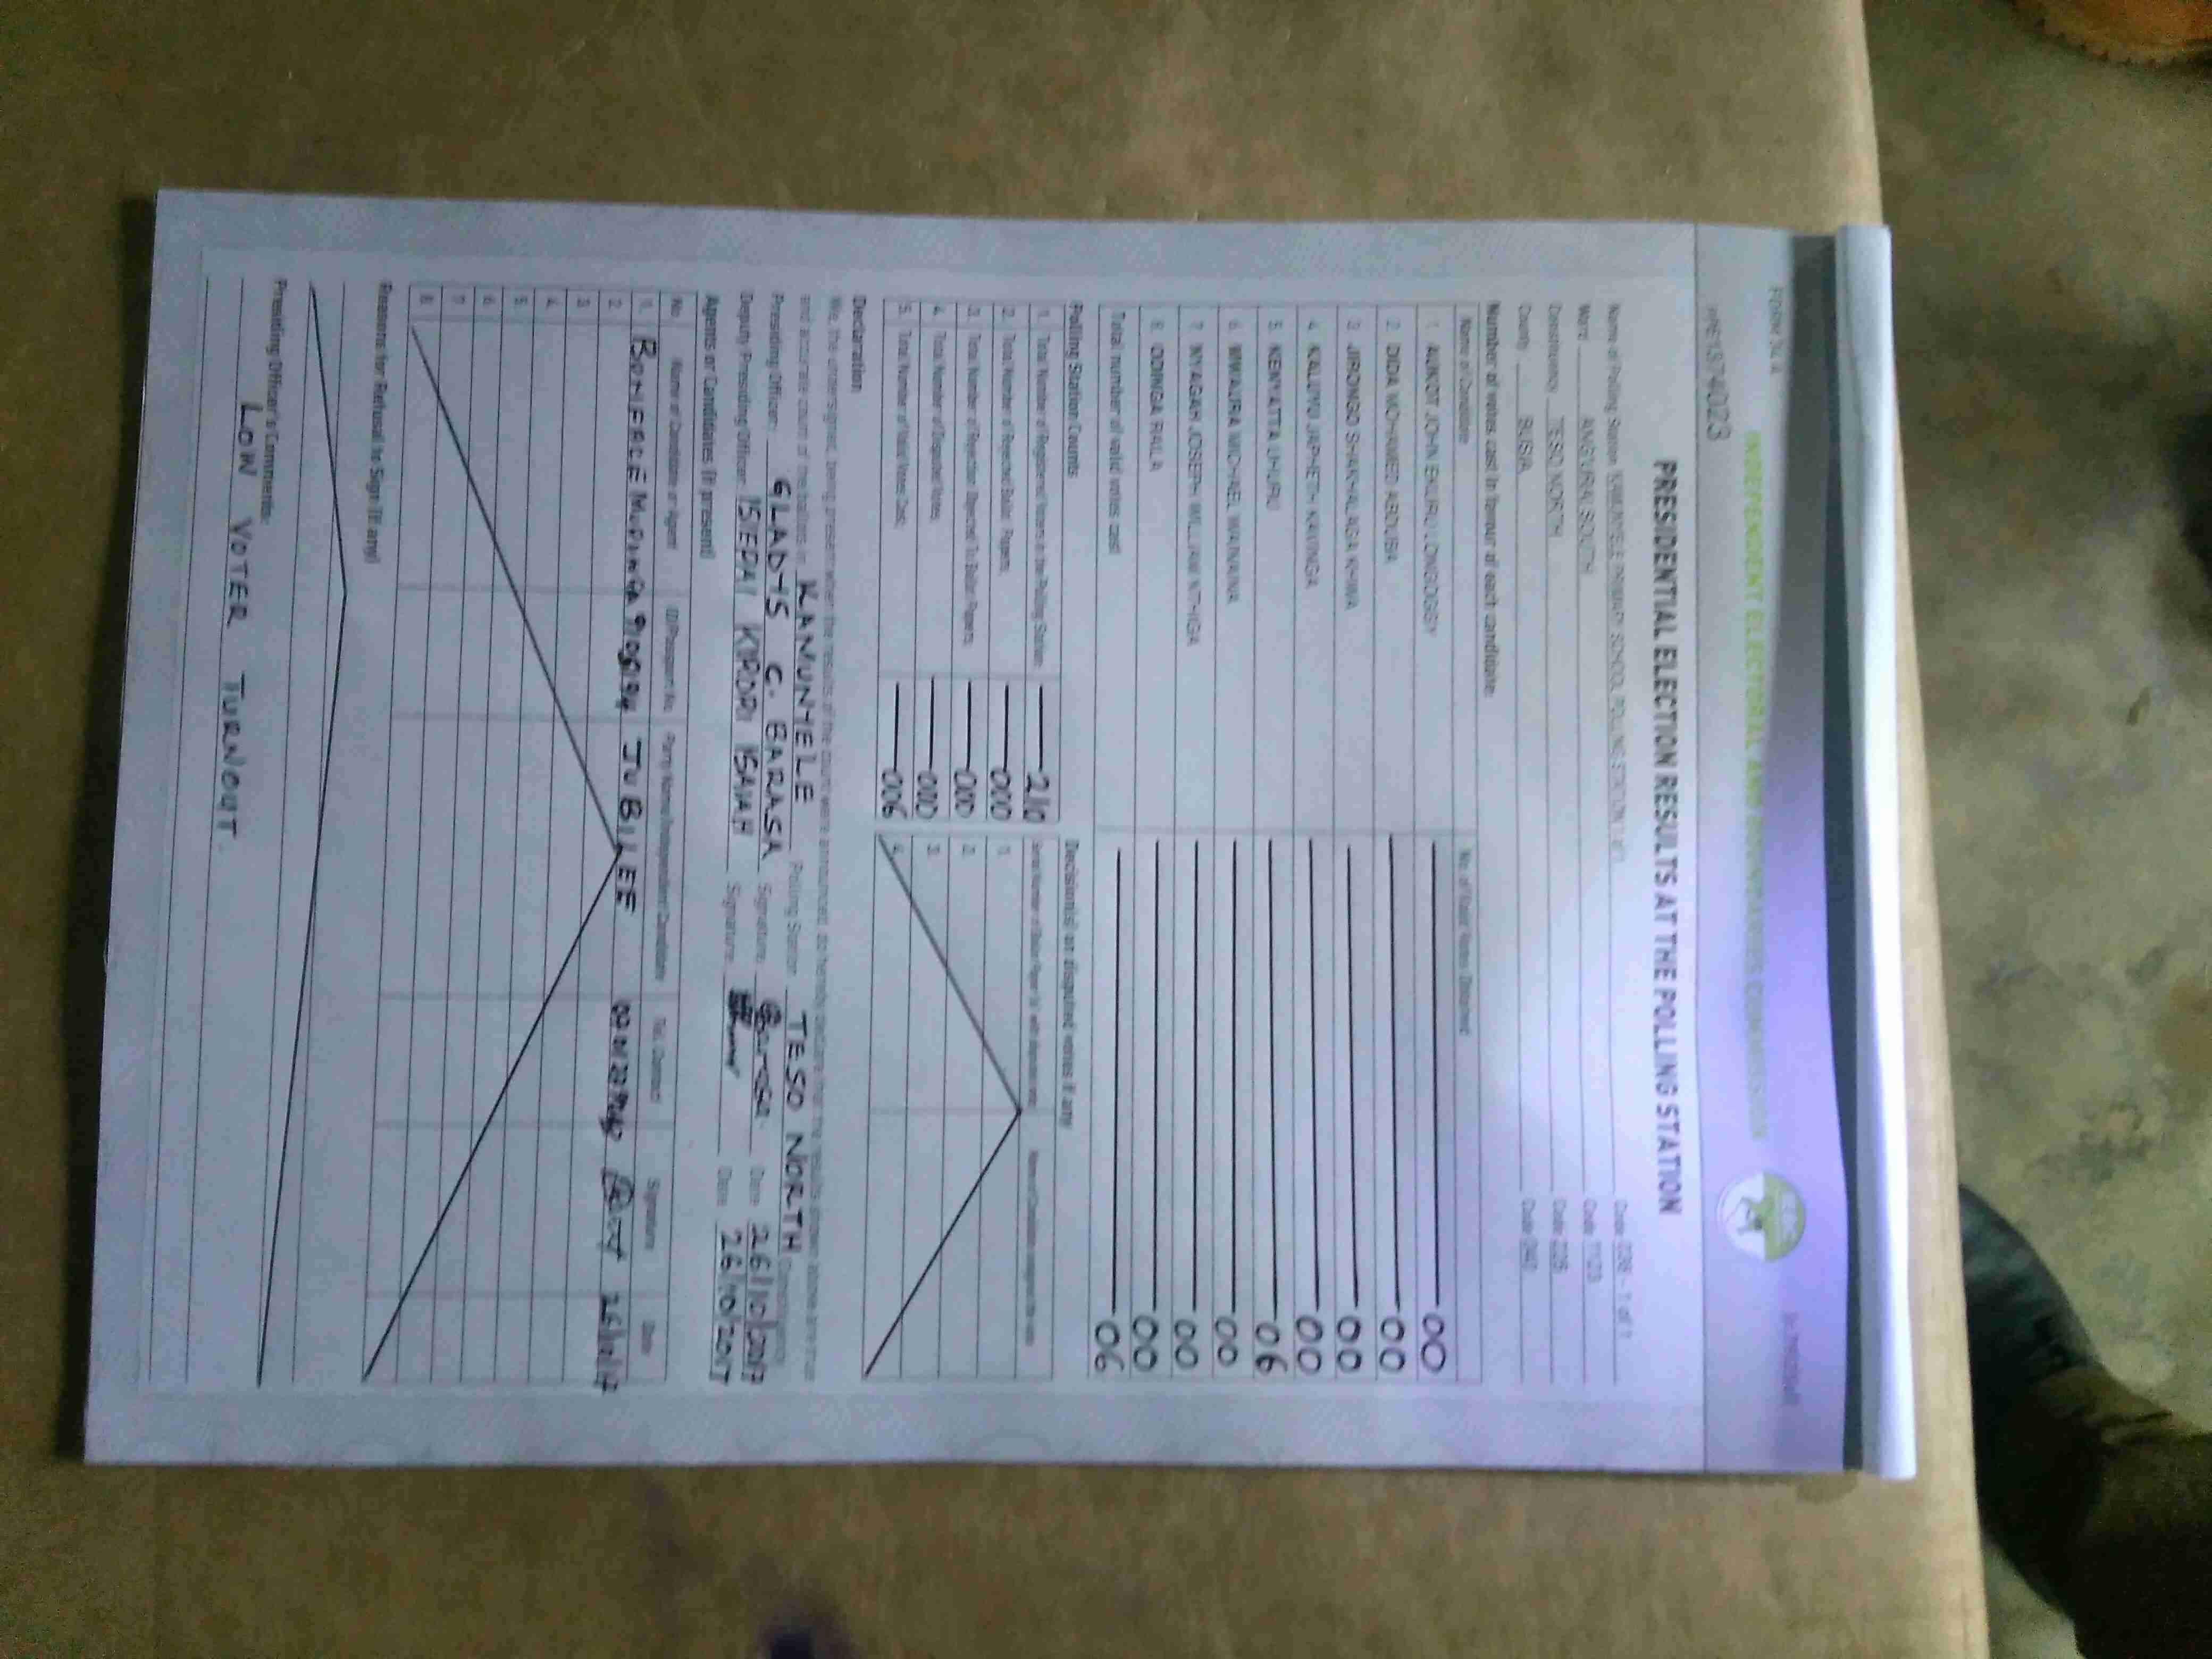 FORM 34 A
INDEPENDENT ELECTORAL AND BOUNDARIES COMMISSION
PRESIDENTIAL ELECTION RESULTS AT THE POLLING STATION
Name of Polling Station KAMUNYELE PRIMARY SCHOOL POLLING STATION 1 of 1 Code
Ward ANG'URAI SOUTH Code
Constituency TESO NORTH Code
County BUSIA Code
Number of votes cast in favour of each candidate:
Name of Candidate No. of Valid Votes Obtained
1. AUKOT JOHN EKURU LONGOGGY 00
2. DIDA MOHAMED ABDUBA 00
3. JIRONGO SHAKHALAGA KHWA 00
4. KALUYU JAPHETH KAVINGA 00
5. KENYATTA UHURU 06
6. MWAURA MICHAEL WAINAINA 00
7. NYAGAH JOSEPH WILLIAM NTHIGA 00
8. ODINGA RAILA 00
Total number of valid votes cast 06
Polling Station Counts Decision(s) on disputed votes if any
1. Total Number of Registered Voters in the Polling Station 210
2. Total Number of Rejected Ballot Papers 000 1.
3. Total Number of Rejection Objected To Ballot Papers 000 2.
4. Total Number of Disputed Votes 000 3.
5. Total Number of Valid Votes Cast 006 4.
Declaration
We, the undersigned, being present when the results of the count were announced, do hereby declare that the results shown above are true
and accurate count of the ballots in KANUNYELE Polling Station TESO NORTH Constituency
Presiding Officer: GLADYS C. BARASA Signature: Date: 26/10/2017
Deputy Presiding Officer: ISEPAI KIRORI ISAIAH Signature: Date: 26/10/2017
Agents or Candidates (if present)
No Name of Candidate or Agent ID/Passport No. Party Name/Independent Candidate Tel. Contact Signature Date
1. BONIFACE JUBILEE
2.
3.
4.
5.
6.
7.
8.
Reasons for Refusal to Sign (if any)
Presiding Officer's Comments:
LOW VOTER TURNOUT.